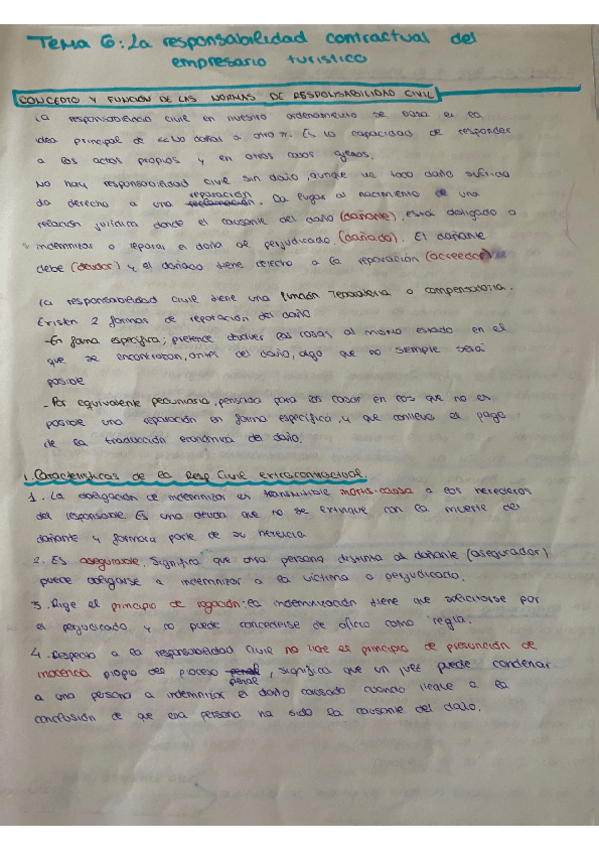 Tema 6: La responsabilidad contractual del
empresario turístico
CONCEPTO Y FUNCIÓN DE LAS NORMAS DE RESPONSABILIDAD CIVIL
La responsabilidad civil en nuestro ordenamiento se basa en la
idea principal de <<No dañar a otro>>. Es la capacidad de responder
a los actos propios y en otros casos ajenos.
No hay responsabilidad civil sin daño, aunque no todo daño sufrido
da derecho a una reparación. Da lugar al nacimiento de una
relación jurídica donde el causante del daño (dañante), está obligado a
indemnizar o reparar el daño al perjudicado (dañado). El dañante
debe (deudor) y el dañado tiene derecho a la reparación (acreedor)
La responsabilidad civil tiene una función reparatoria o compensatoria.
Existen 2 formas de reparación del daño
-En forma específica; pretende devolver las cosas al mismo estado en el
que se encontraban, antes del daño, algo que no siempre será
posible
-Por equivalente pecuniario, pensada para los casos en los que no es
posible una reparación en forma específica, y que conlleva el pago
de la traducción económica del daño.
1. Características de la Resp. Civil extracontractual.
1. La obligación de indemnizar es transmisible mortis-causa a los herederos
del responsable. Es una deuda que no se extingue con la muerte del
dañante y formará parte de su herencia
2. Es asegurable. Significa que otra persona distinta al dañante (asegurador)
puede obligarse a indemnizar a la víctima o perjudicado.
3. Rige el principio de rogación: la indemnización tiene que solicitarse por
el perjudicado y no puede concederse de oficio como regla.
4. Respecto a la responsabilidad civil no rige el principio de presunción de
inocencia propio del proceso penal, significa que un juez puede condenar
a una persona a indemnizar el daño causado cuando llegue a la
conclusión de que esa persona ha sido la causante del daño.